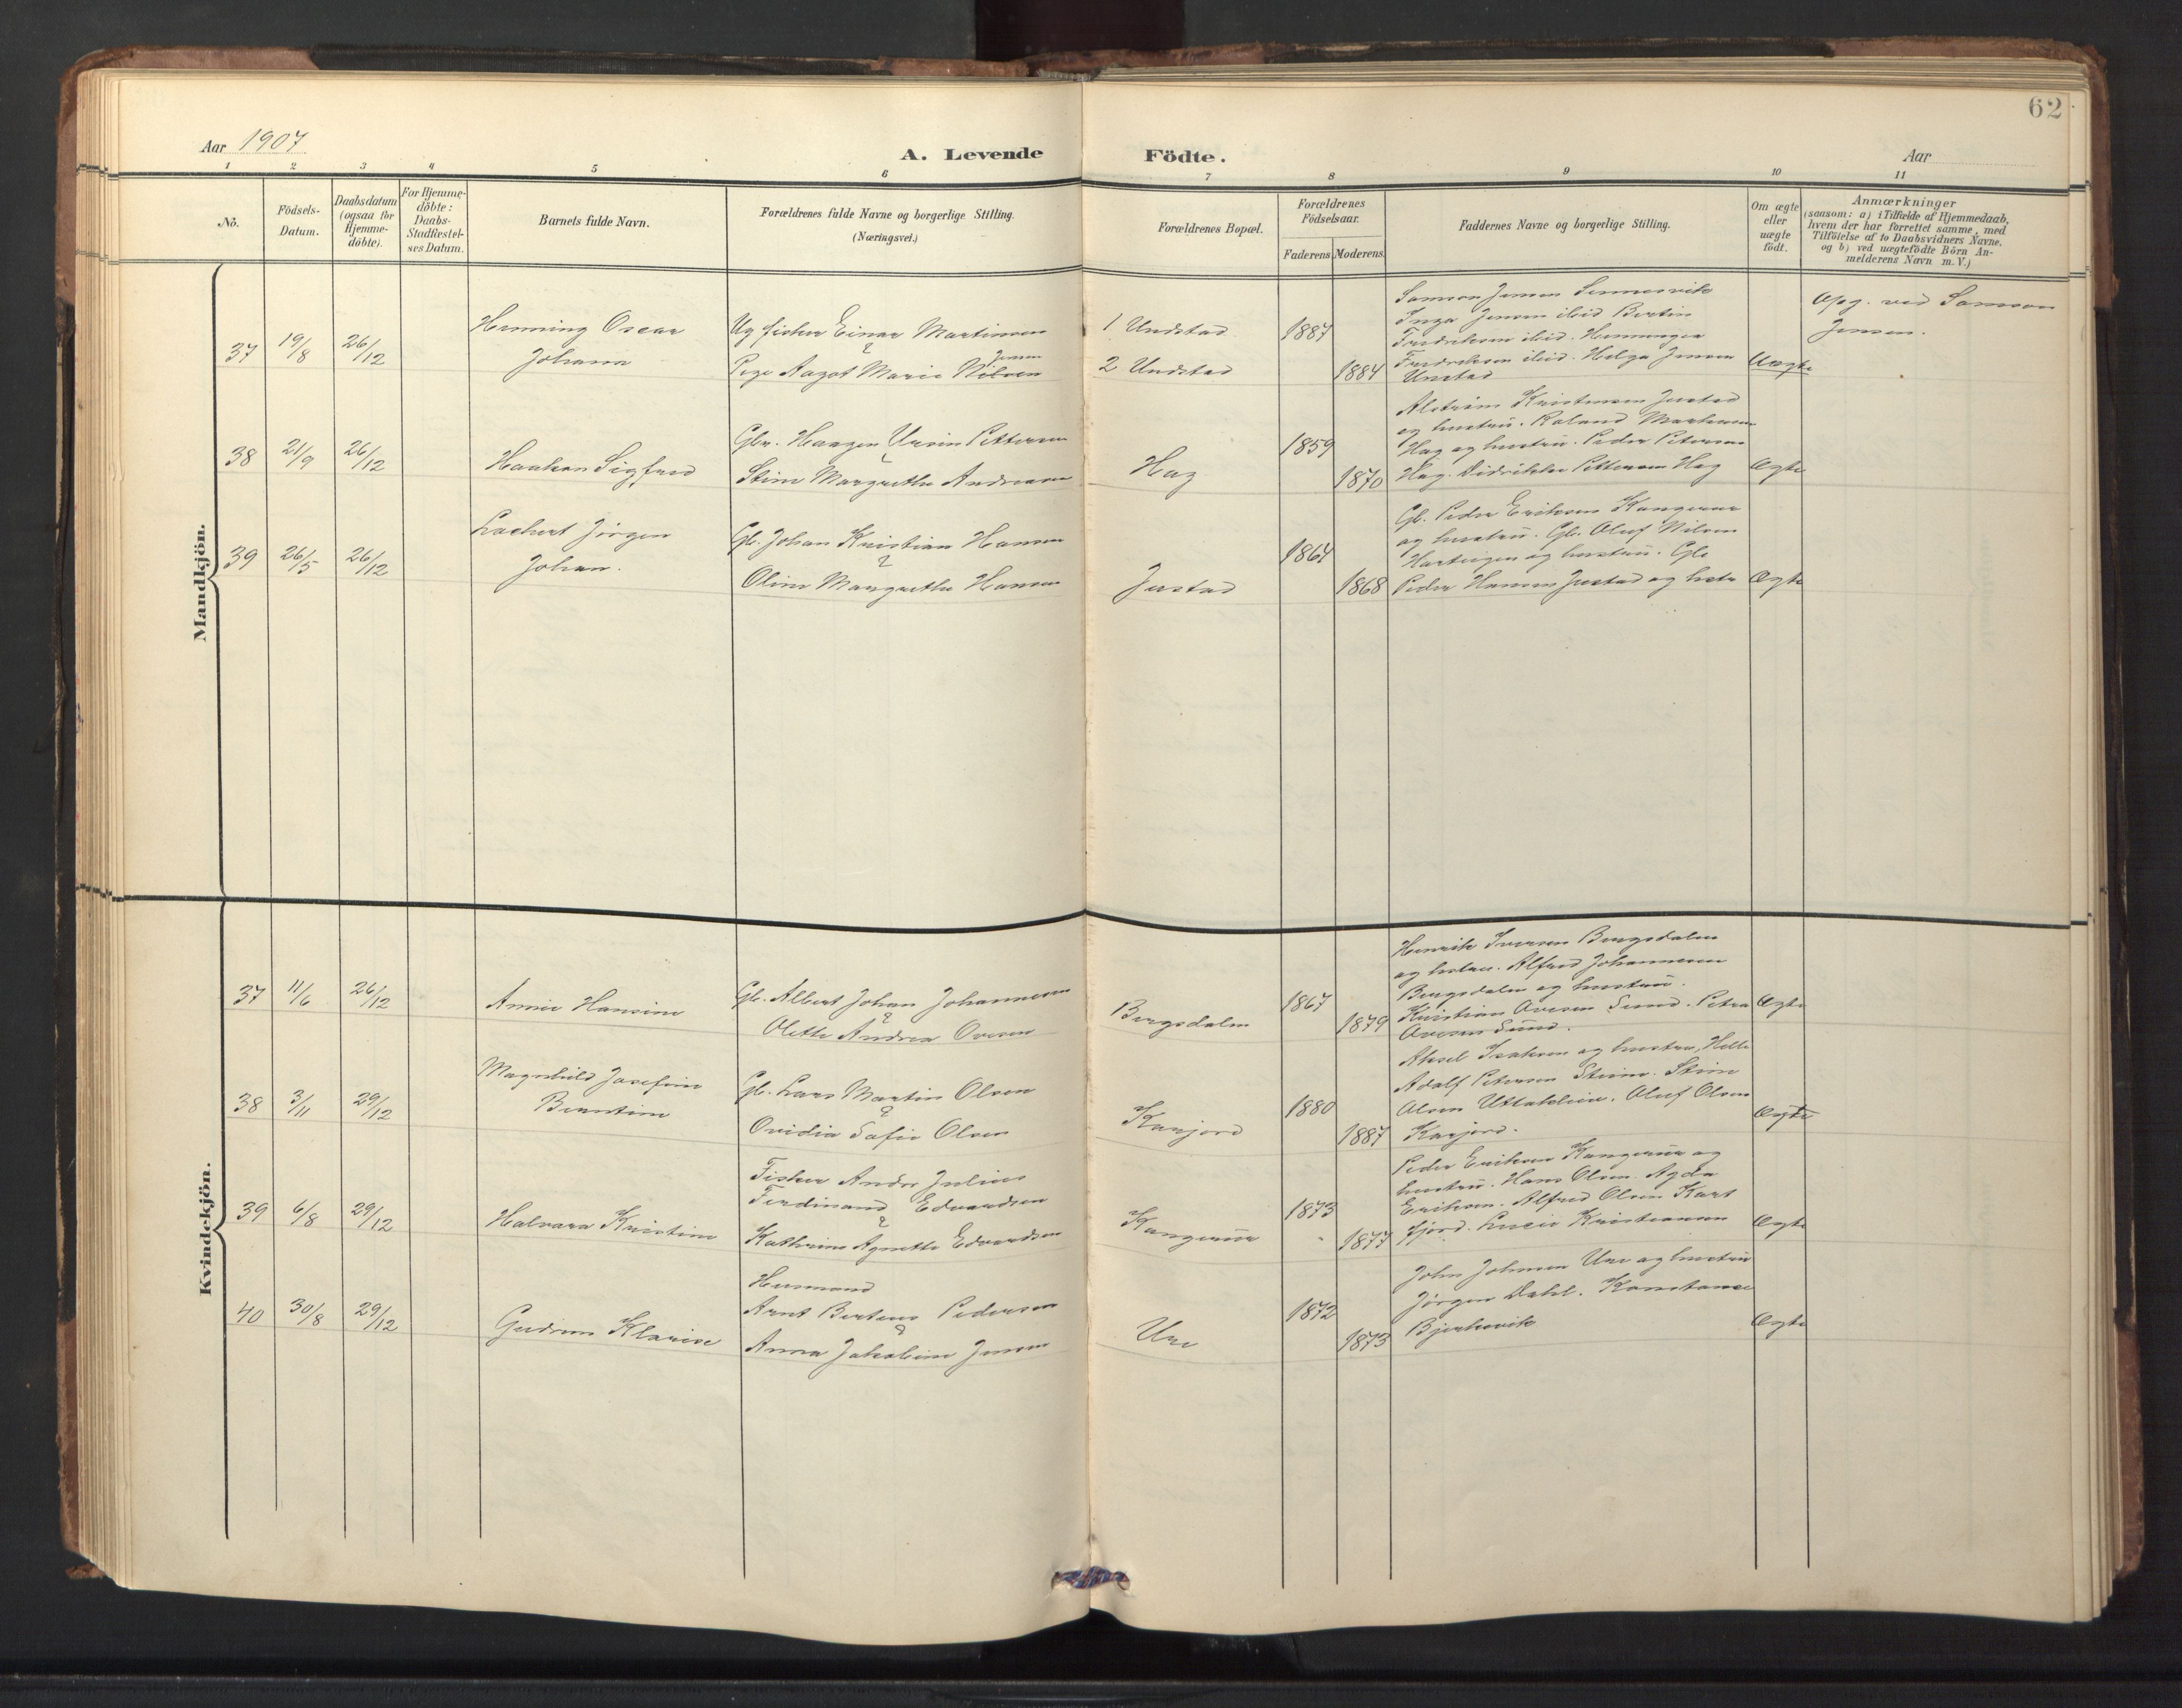 62
Aar 1907
A. Levende Födte.
Aar
1 2 3 4 5 6 7 8 9 10 11
No.
Födsels-
Datum.
Daabsdatum
(ogsaa for
Hjemme-
döbte).
For Hjemme-
döbte:
Daabs-
Stadfæstel-
ses Datum.
Barnets fulde Navn.
Forældrenes fulde Navne og borgerlige Stilling.
(Næringsvei.)
Forældrenes Bopæl.
Forældrenes
Födselsaar.
Faderens. Moderens.
Faddernes Navne og borgerlige Stilling.
Om ægte
eller
uægte
födt.
Anmærkninger
(saasom: a) i Tilfælde af Hjemmedaab,
hvem der har forrettet samme, med
Tilföielse af to Daabsvidners Navne,
og b) ved uægtefödte Börn An-
melderens Navn m. V.)
Mandkjön.
37 19/8 26/12
Henning Oscar
Johann
Ug fisker Einar Martinsen
Pige Aagot Marie Nilsen
Jensen
1 Undstad
2 Undstad
1887
1884
Samson Jensen Sennesvik
Inga Jensen ibid Bertin
Fredriksen ibid. Henningea
Fredriksen ibid. Helga Jensen
Unstad
Uægte
Opg. ved Samson
Jensen.
38 21/9 26/12
Haakon Sigfred
Gbr. Haagen Ursin Pettersen
Stine Margrethe Andreasen
Hag
1859
1870
Alstrøm Kristensen Justad
og hustru. Roland Markussen
Hag og hustru. Peder Petersen
Hag. Didrikke Pettersen Hag
Ægte
39 26/5 26/12
Lockert Jörgen
Johan.
Gb. Johan Kristian Hansen
Oline Margrethe Hansen
Justad
1864
1868
Gb. Peder Eriksen Kangerur
og hustru. Gb. Oluf Nilsen
Hartvigen og hustru. Gb.
Peder Hansen Justad og hustr
Ægte
Kvindekjön.
37 11/6 26/12
Annie Hansine
Gb. Albert Johan Johannesen
Olette Andrea Ovesen
Bergsdalen
1867
1879
Henrik Iversen Bergsdalen
og hustru. Alfred Johannesen
Bergsdalen og hustru.
Kristian Ovesen Sund. Petra
Ovesen Sund.
Ægte
38 3/11 29/12
Magnhild Josefine
Berntine
Gb. Lars Martin Olsen
Ovidia Sofie Olsen
Kanjord
1880
1887
Aksel Isaksen og hustru, Helle
Adolf Petersen Steine. Stine
Olsen Uttakleiv. Oluf Olsen
Kanjord.
Ægte
39 6/8 29/12
Halvara Kristine
Fisker Andor Julius
Ferdinand Edvardsen
Kathrine Agnethe Edvardsen
Kangerur
1873
1877
Peder Eriksen Kangerur og
hustru. Hans Olsen. Agda
Eriksen. Alfred Olsen Kart
fjord. Lucie Kristiansen
Ægte
40 30/8 29/12
Gudrun Klarise
Husmand
Arnt Berteus Pedersen
Anna Jakobine Jensen
Ure
1872
1873
John Johnsen Ure og hustru
Jörgen Dahl. Konstanse
Bjerkevik
Ægte